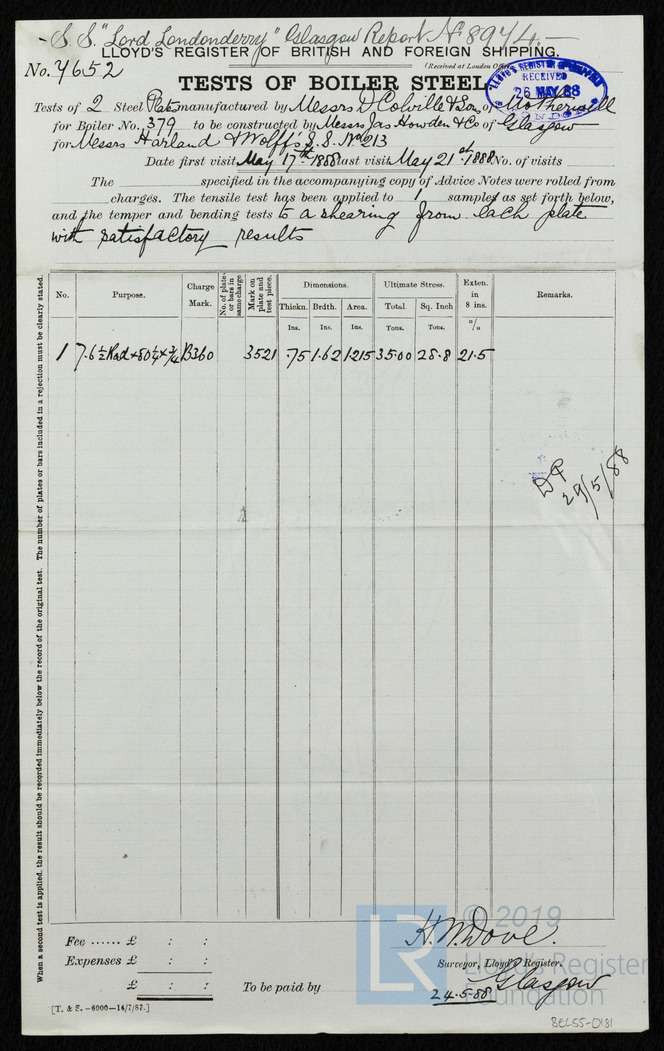 - S. S. "Lord Londonderry" Glasgow Report No 8974. -
LLOYD'S REGISTER OF BRITISH AND FOREIGN SHIPPING.
(Received at London Office
No. 4652
LLOYD'S REGISTER OF SHIPPING
RECEIVED
26 MAY 88
LONDON
TESTS OF BOILER STEEL
Tests of 2 Steel Plates manufactured by Messrs D Colville & Sons of Motherwell
for Boiler No. 379 to be constructed by Messrs Jas Howden & Co of Glasgow
for Messrs Harland & Wolff's S.S. No 213
Date first visit May 17th 1888 last visit May 21st 1888 No. of visits
The specified in the accompanying copy of Advice Notes were rolled from
charges. The tensile test has been applied to 1 samples as set forth below,
and the temper and bending tests to a shearing from each plate
with satisfactory results
No. Purpose. Charge Mark. No. of plates or bars in same charge Mark on plate and test piece. Dimensions. Ultimate Stress. Exten. in 8 ins. Remarks.
Thickn. Brdth. Area. Total Sq. Inch
Ins. Ins. Ins. Tons. Tons. %
1 7.6½ Rad × 80¼ × ¾ B360 3521 .75 1.62 1.215 35.00 28.8 21.5
29/5/88
When a second test is applied, the result should be recorded immediately below the record of the original test. The number of plates or bars included in a rejection must be clearly stated.
Fee ...... £ : :
Expenses £ : :
£ : :
To be paid by
H. W. Dove.
Surveyor, Lloyd's Register.
24-5-88 Glasgow
[T. & S. -6000-14/7/87.]
LR
© 2019
Lloyd's Register
Foundation
BEL55-0181